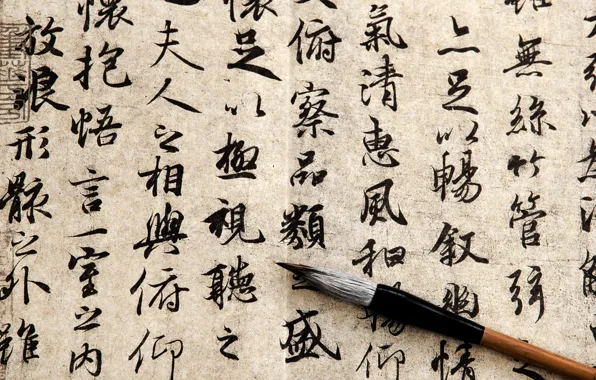 雖無絲竹管弦
亦足以暢敘幽情
氣清惠風和暢仰
俯察品類之盛
懷足以極視聽之
也夫人之相與俯仰
懷抱悟言一室之內
放浪形骸之外雖